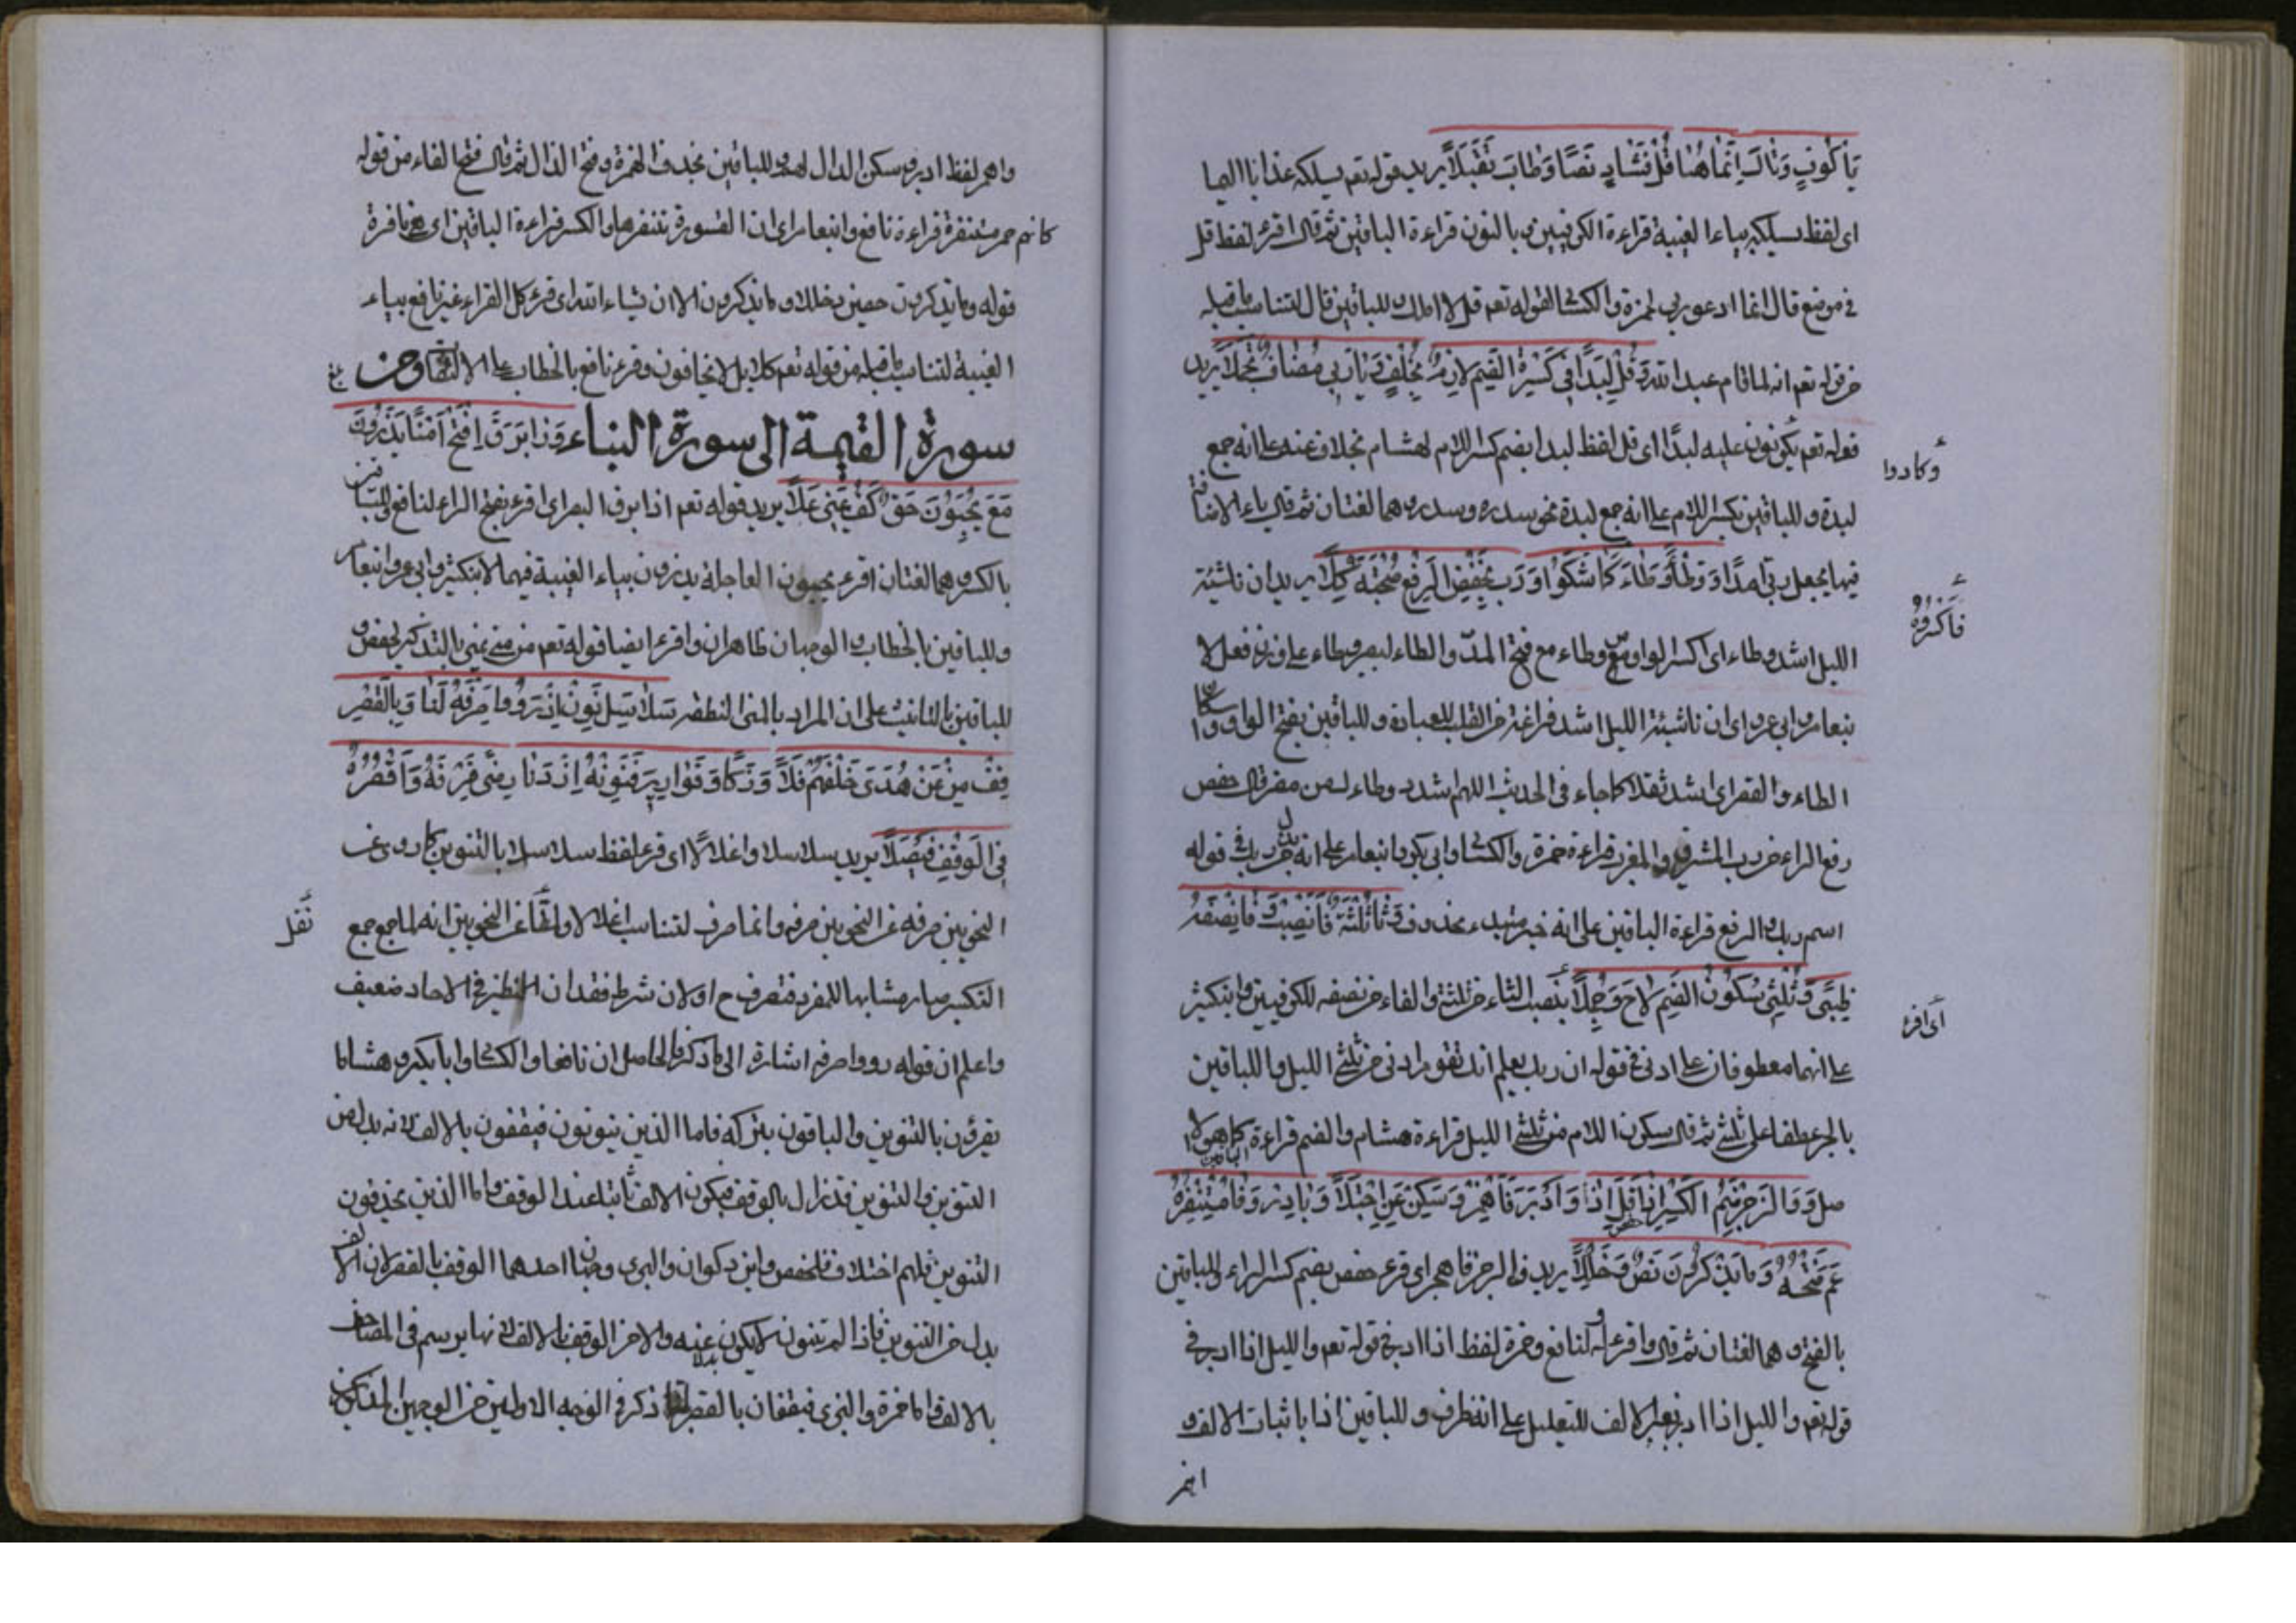 يا كوفٍ وقال انما هنا قل فشا د نصا وطاب تقبلا يريد قوله تعم يسلكه عذابا اليما
اى لفظ يسلكه بياء الغيبة قراءة الكوفيين و بالنون قراءة الباقين ثم قال اقرء لفظ قل
فى موضع قال انما ادعو ربى لحمزة والكسا لقوله تعم قل لا املك وللباقين قال لتناسب ما قبله
من قوله تعم انه لما قام عبد الله قل لبدا فى كسره الضم لازم بخلف ويا ربى مضاف تجملا يريد
قوله تعم يكونون عليه لبدا اى قل لفظ لبدا بضم كسر اللام لهشام بخلاف عنه على انه جمع
لبدة وللباقين بكسر اللام على انه جمع لبدة نحو سدره وسدر وهما لغتان ثم قال ياء الاضافة
فيها يجعل ربى امدا ووطأ وطاء كما شكوا ورب بخفض الرفع صحبته كلا يريد ان ناشئة
الليل اشد وطاء اى اكسر الواو مع وطاء مع فتح المد والطاء لبصر وطاء على وزن فعل لا
بنعامر وابى عمرو اى ان ناشئة الليل اشد فراغة من القلب للعبادة وللباقين بفتح الواو واسكان
الطاء والقصر اى اشد ثقلا كما جاء فى الحديث اللهم اشدد وطاءك على مضر قال خفض
رفع الراء من رب المشرق والمغرب قراءة حمزة والكسا وابى بكر وابنعامر على انه بدل من ربك فى قوله
اسم ربك والرفع قراءة الباقين على انه خبر مبتدء محذوف وثا ثلثه فانصب وفا نصفه
ظبى وثلثى سكون الضم لاح وجملا بنصب الثاء من ثلثه والفاء من نصفه للكوفيين وابنكثير
على انهما معطوفان على ادنى فى قوله ان ربك يعلم انك تقوم ادنى من ثلثى الليل واللباقين
بالجر عطفا على ثلثى ثم قال سكون اللام من ثلثى الليل قراءة هشام والضم قراءة الباقين كما هو الا
صل ووا لرجز ضم الكسر حفص اذا قل اذ وادبر فاهمز وسكن عن اجتلا وبادر وفا مستنفره
عم فتحه وما يذكرون نص وخللا يريد والرجز فاهجر اى قرء حفص بضم كسر الراء وللباقين
بالفتح وهما لغتان ثم قال واقرء له ولنافع وحمزة لفظ اذا ادبر فى قوله تعم والليل اذا ادبر فى
قوله تعم والليل اذا ادبر بغير الالف للتعليل على انه ظرف وللباقين اذا باثبات الالف و
اهمز
وكادوا
فاكسروه
اى اقرء
واهمز لفظ ادبر وسكن الدال لهم وللباقين بحذف الهمزة وفتح الدال ثم قال فتح الفاء من قوله
كانهم حمر مستنفرة قراءة نافع وابنعامر اى ان القسورة تنفرها والكسر قراءة الباقين اى هى نافرة
قوله وما يذكرون حصين بخلاف وما يذكرون الا ان يشاء الله اى قرء كل القراء غير نافع بياء
الغيبة لتناسب ما قبله من قوله تعم كلا بل لا يخافون وقرء نافع بالخطاب على الالتفات ومن
سورة القيمة الى سورة النباء ورا برق افتح امنا يذرون
مع يحبون حق كف يمنى علا يريد قوله تعم اذا برق البصر اى اقرء بفتح الراء لنافع وللباقين
بالكسر وهما لغتان اقرء يحبون العاجلة يذرون بياء الغيبة فيهما لابنكثير وابى عمرو وابنعامر
وللباقين بالخطاب والوجهان ظاهران واقرء ايضا قوله تعم من منى يمنى بالتذكير لحفص و
للباقين بالتانيث على ان المراد بالمنى النطفة سلاسل نون اذ رووا صرفه لنا وبالقصر
قف من عن هدى خلفهم فلا وزكا وقواريرا فنونه اذ دنا رضى صرفه واقصره
فى الوقف فيصلا يريد سلاسلا واغلالا اى قرء لفظ سلاسلا بالتنوين كما روى عن
النحويين صرفه عن النحويين صرفه وانما صرف لتناسب اغلالا ولما نقل عن النحويين انه لما جمع جمع
التكسير صار مشابها للمفرد فتصرف ح او لان شرطه فقدان النظير فى الاحاد ضعيف
واعلم ان قوله رووا صرفه اشارة الى ما ذكر والحاصل ان نافعا والكسا وابا بكر وهشاما
يقرؤن بالتنوين والباقون بتركه فاما الذين ينونون فيقفون بالالف لانه بدل من
التنوين والتنوين قد زال بالوقف فيكون الالف ثابتا عند الوقف واما الذين يحذفون
التنوين فلهم اختلاف فلحفص وابن ذكوان والبزى وجهان احدهما الوقف بالقصر لان الالف
بدل من التنوين فاذا لم ينون لا يكون بدلا عنه والاخر الوقف بالالف لانها يرسم فى المصاحف
بالالف واما حمزة والبزى فيقفان بالقصر لما ذكر فى الوجه الاول من الوجهين المذكورين
نقل